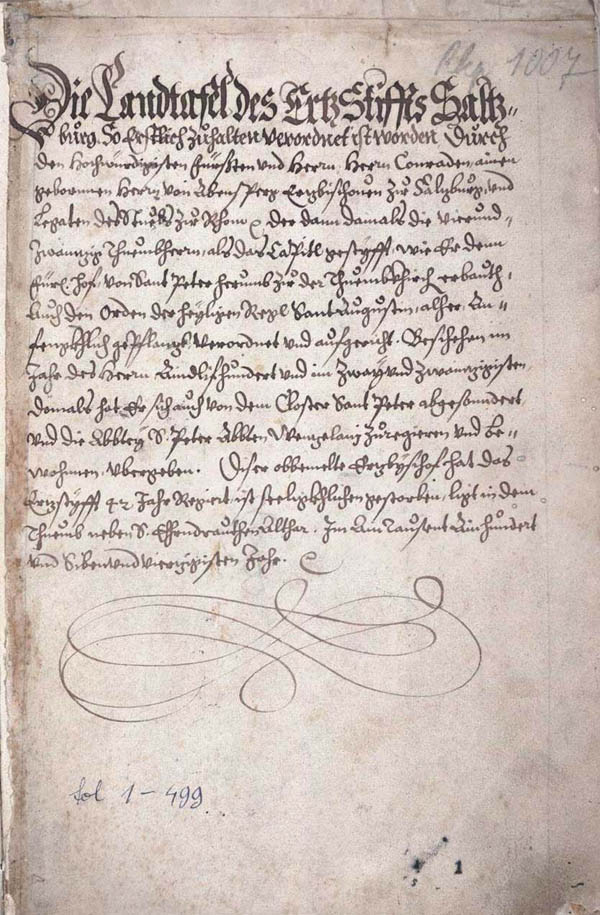 Pkg 1007
Die Landtafel des Ertz Stiffts Saltz-
burg. So Erstlich zuhalten verordnet ist worden. Durch
den Hochwürdigisten Fürsten und Herrn, Herrn Conraden, ainen
gebornnen Herrn von Abensperg Ertzbischoven zu Saltzburg, und
Legaten des Stuels zu Rhom der dann damals die vierund-
zwaintzig Thuembherrn, als das Capitl gestifft, wie Er dem
Fürl. Hof, von Sant Peter herumb zu der Thuembkhirch erbauth,
Auch den Orden der heyligen Regl Sant Augustin, alher, An-
fengkhlich gepflantzt verordnet und aufgericht. Beschehen im
Jahr des Herrn Aindlifhundert und im zway und zwaintzigisten,
damals hat Er sich auch von dem Closter Sant Peter abgesöndert
und die Abbtey S. Peter Abbten zuregieren und be-
wohnen, ubergeben. Diser obbemelte Ertzbyschof hat das
Ertzstyfft 42 Jahr Regiert, ist seeligkhlichen gestorben, ligt in dem
Thuemb neben S. Altar. Im Ain Tausent Ainhundert
und Siben und viertzigisten Jahr.
fol 1 - 499
1